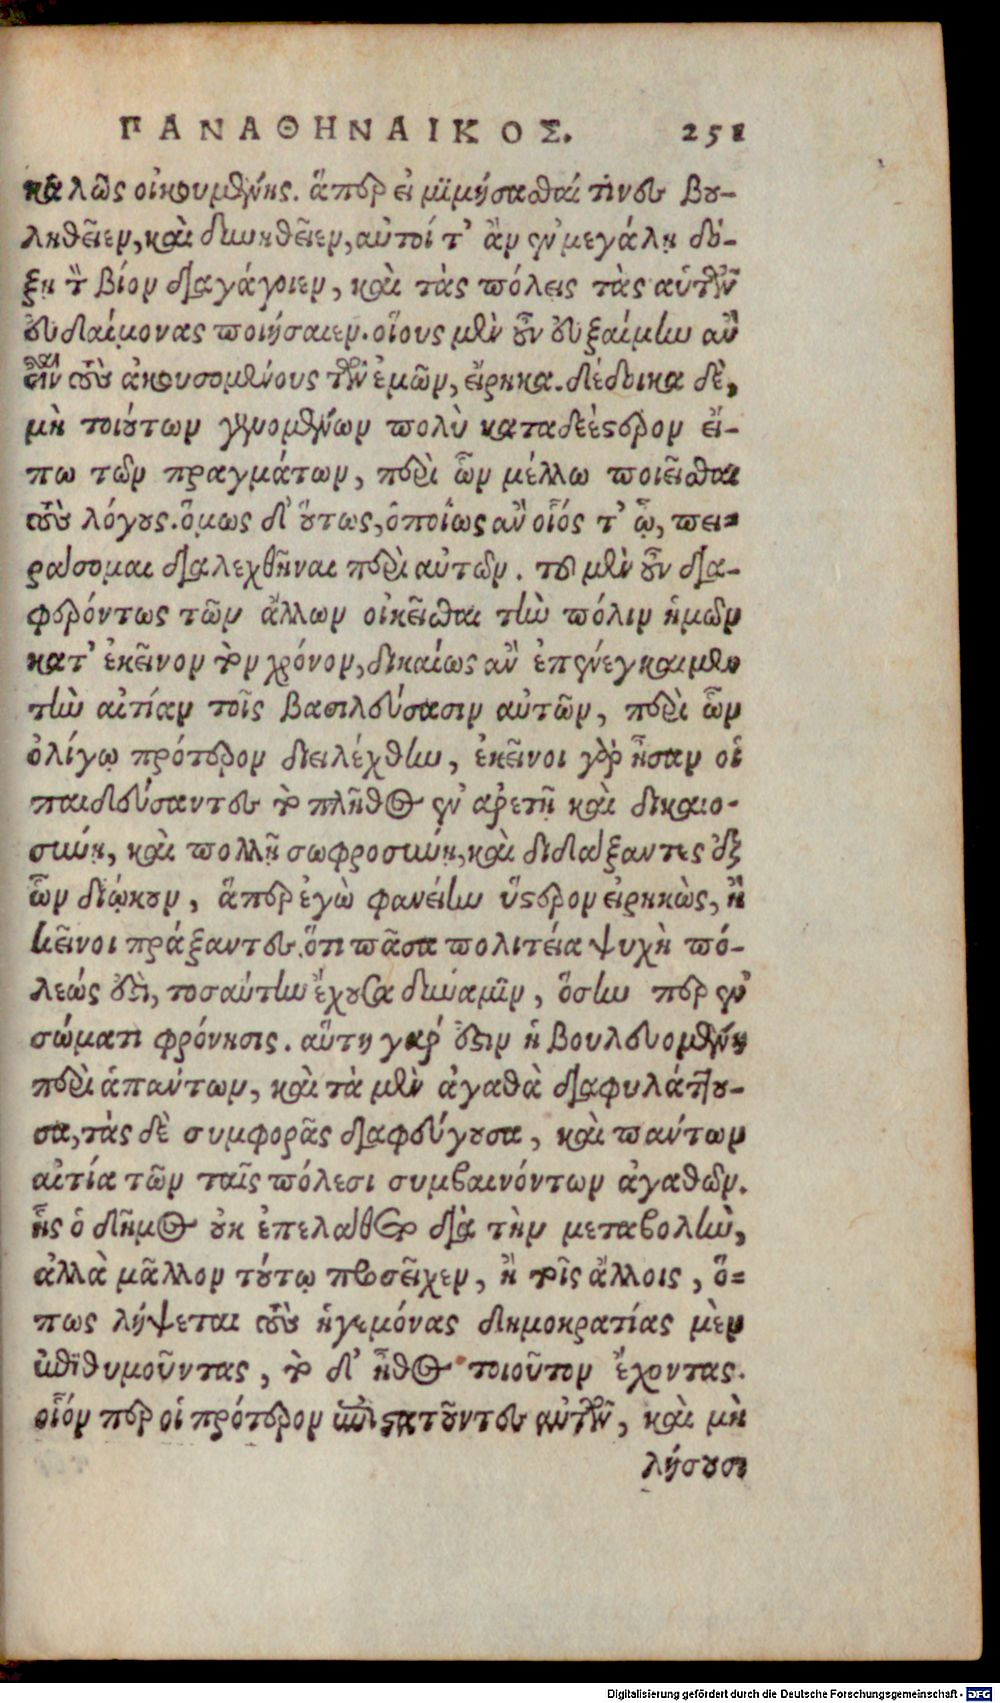 ΠΑΝΑΘΗΝΑΙΚΟΣ. 251
καλῶς οἰκουμένης. ἅπερ εἰ μιμήσασθαί τινες βου-
ληθεῖεν, καὶ δυνηθεῖεν, αὐτοί τ' ἂν ἐν μεγάλῃ δό-
ξῃ τὸν βίον διαγάγοιεν, καὶ τὰς πόλεις τὰς αὑτῶν
εὐδαίμονας ποιήσαιεν. οἵους μὲν οὖν εὐξαίμην ἂν
εἶναι τοὺς ἀκουσομένους τῶν ἐμῶν, εἴρηκα. δέδοικα δὲ,
μὴ τοιούτων γενομένων πολὺ καταδεέστερον εἴ-
πω τῶν πραγμάτων, περὶ ὧν μέλλω ποιεῖσθαι
τοὺς λόγους. ὅμως δ' οὕτως, ὁποίως ἂν οἷός τ' ὦ, πει-
ράσομαι διαλεχθῆναι περὶ αὐτῶν. τοῦ μὲν οὖν δια-
φερόντως τῶν ἄλλων οἰκεῖσθαι τὴν πόλιν ἡμῶν
κατ' ἐκεῖνον τὸν χρόνον, δικαίως ἂν ἐπενέγκαιμεν
τὴν αἰτίαν τοῖς βασιλεύσασιν αὐτῶν, περὶ ὧν
ὀλίγῳ πρότερον διειλέχθην, ἐκεῖνοι γὰρ ἦσαν οἱ
παιδεύσαντες τὸ πλῆθος ἐν ἀρετῇ καὶ δικαιο-
σύνῃ, καὶ πολλῇ σωφροσύνῃ, καὶ διδάξαντες ἐξ
ὧν διῴκουν, ἅπερ ἐγὼ φανείην ὕστερον εἰρηκὼς, ἢ
κεῖνοι πράξαντες. ὅτι πᾶσα πολιτεία ψυχὴ πό-
λεώς ἐστι, τοσαύτην ἔχουσα δύναμιν, ὅσην περ ἐν
σώματι φρόνησις. αὕτη γάρ ἐστιν ἡ βουλευομένη
περὶ ἁπάντων, καὶ τὰ μὲν ἀγαθὰ διαφυλάττου-
σα, τὰς δὲ συμφορὰς διαφεύγουσα, καὶ πάντων
αἰτία τῶν ταῖς πόλεσι συμβαινόντων ἀγαθῶν.
ἧς ὁ δῆμος οὐκ ἐπελάθετο διὰ τὴν μεταβολὴν,
ἀλλὰ μᾶλλον τούτῳ προσεῖχεν, ἢ τοῖς ἄλλοις, ὅ-
πως λήψεται τοὺς ἡγεμόνας δημοκρατίας μὲν
ἐπιθυμοῦντας, τὸ δ' ἦθος τοιοῦτον ἔχοντας.
οἷόν περ οἱ πρότερον ἐπιστατοῦντες αὐτῶν, καὶ μὴ
λήσουσι
Digitalisierung gefördert durch die Deutsche Forschungsgemeinschaft - DFG